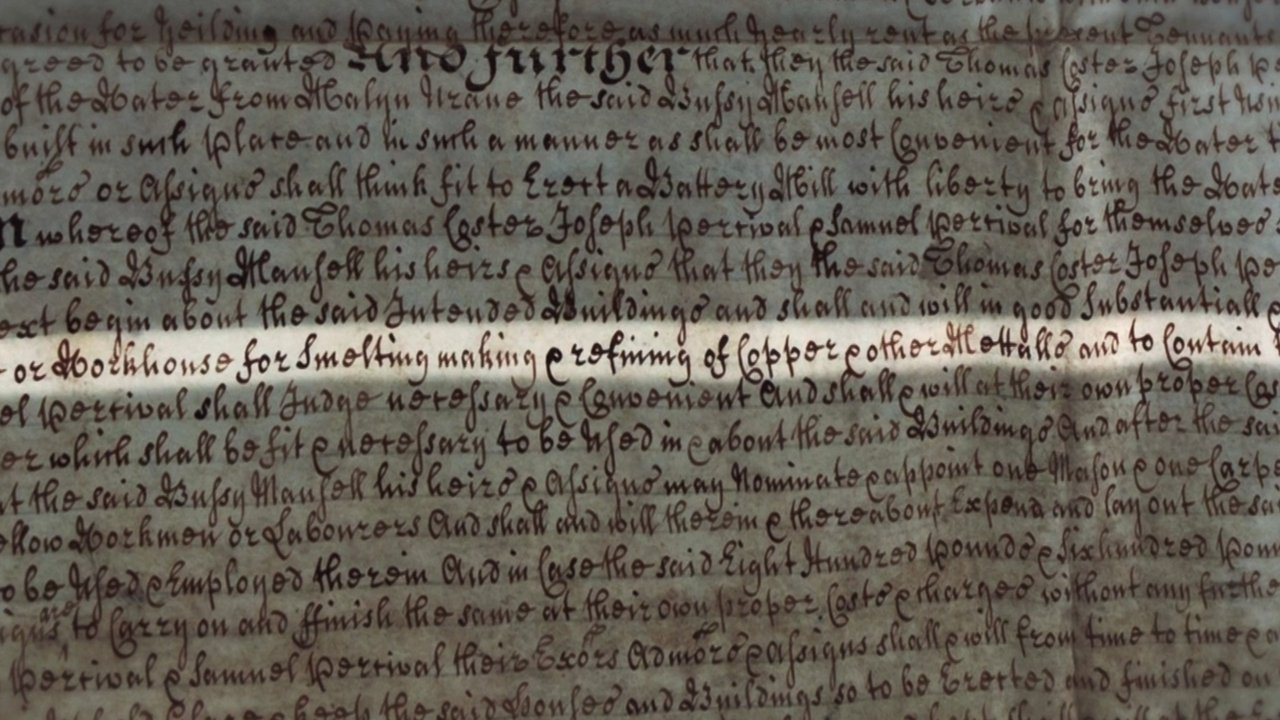 casion for Yeilding and Paying therefore as much yearly rent as the present Tennants
greed to be granted And further that they the said Thomas Coster Joseph Pe
of the Water from Malyn Crane the said Bussy Mansell his heirs & Assigns first
built in such Place and in such a manner as shall be most Convenient for the Water t
mors or Assigns shall think fit to Erect a Battery Mill with liberty to bring the Wate
n whereof the said Thomas Coster Joseph Percival & Samuel Percival for themselves
he said Bussy Mansell his heirs & Assigns that they the said Thomas Coster Joseph Pe
ext begin about the said Intended Buildings and shall and will in good Substantiall &
or Workhouse for Smelting making & refining of Copper & other Mettalls and to Contain
el Percival shall Judge necessary & Convenient And shall & will at their own proper Cos
er which shall be fit & necessary to be Used in & about the said Buildings And after the sai
at the said Bussy Mansell his heirs & Assigns may Nominate & appoint one Mason & one Carpe
ellow Workmen or Labourers And shall and will therein & thereabout Expend and lay out the sa
o be Used & Employed therein And in Case the said Eight Hundred Pounds & Six hundred Poun
igns are to Carry on and ffinish the same at their own proper Costs & Charges without any furthe
Percival & Samuel Percival their Exors Admors & Assigns shall & will from time to time &
keep the said Houses and Buildings so to be Erected and finished